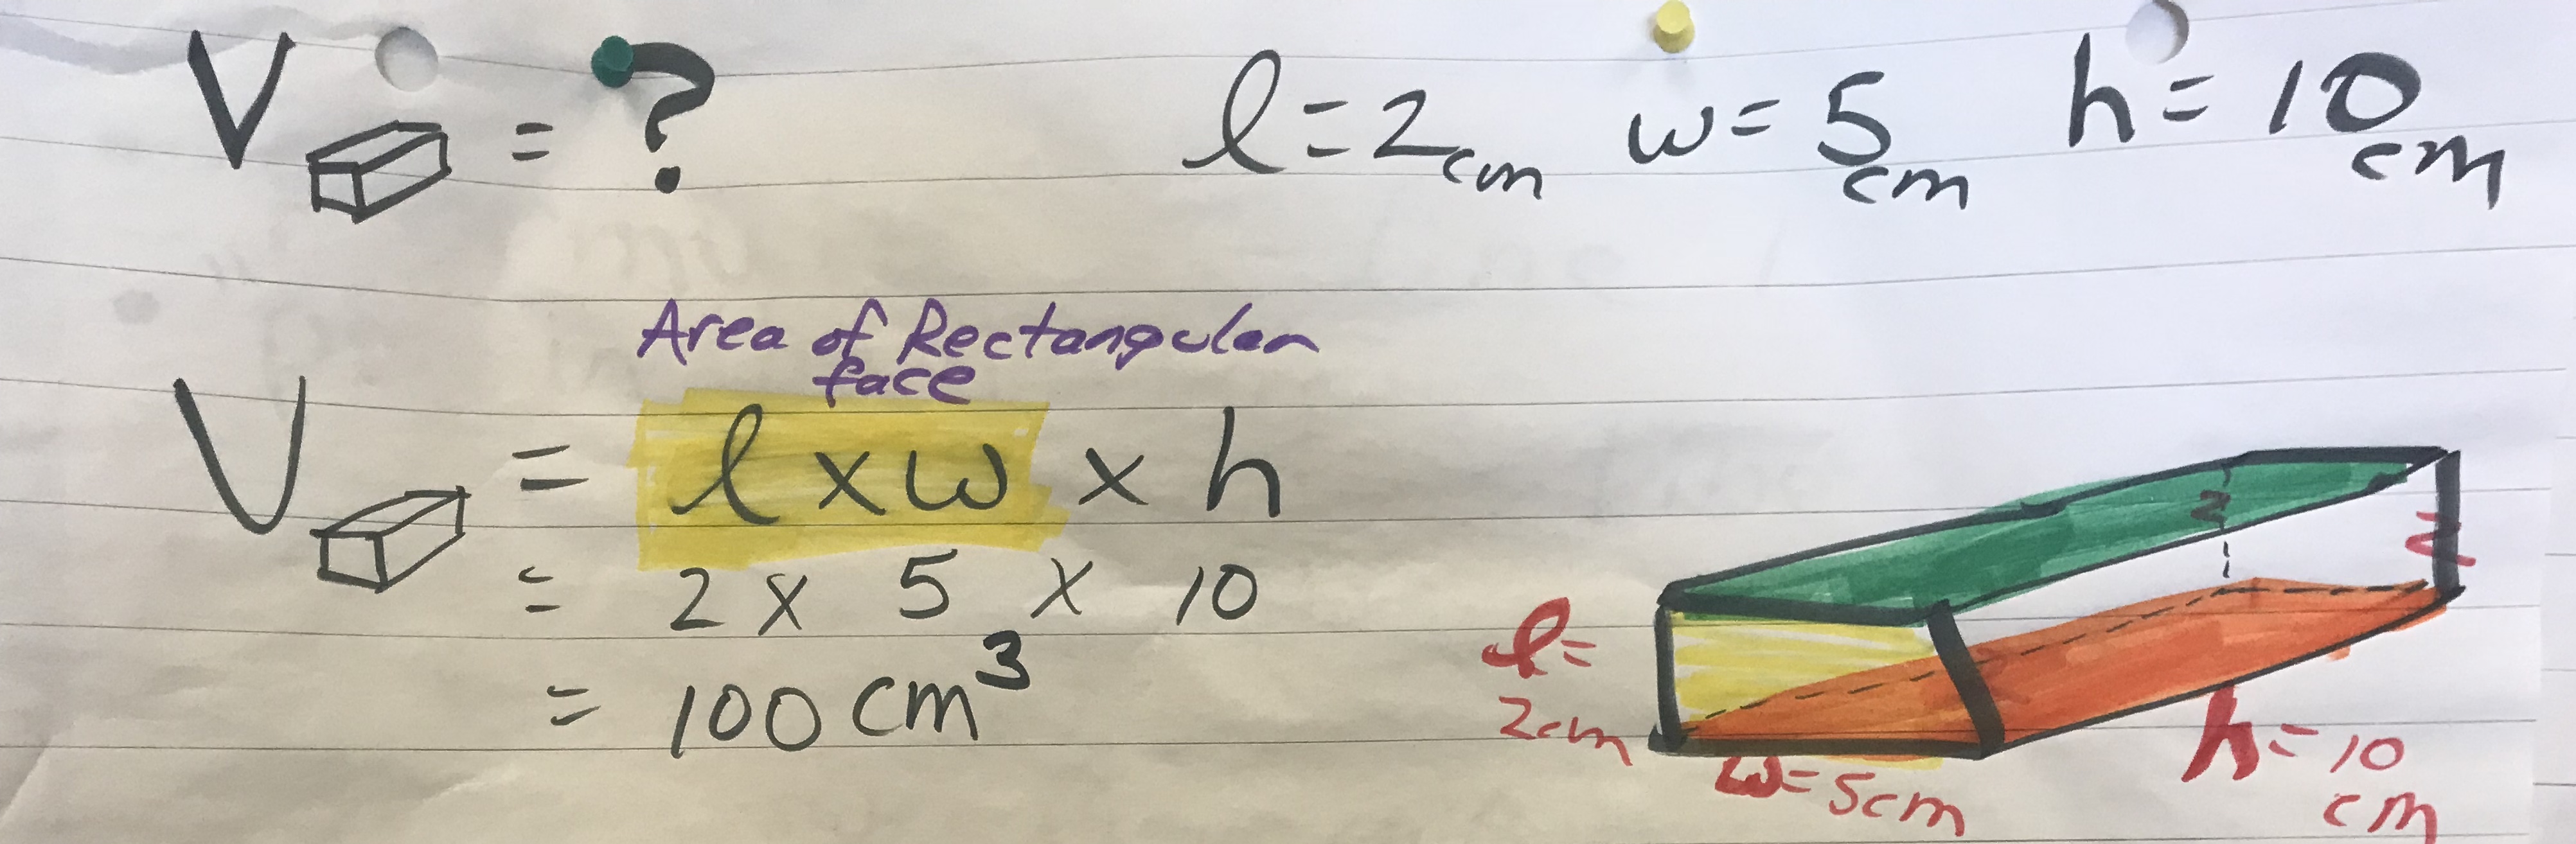 V = ?
l = 2cm w = 5cm h = 10cm
Area of Rectangular
face
V = l x w x h
= 2 x 5 x 10
= 100 cm³
l =
2cm
w = 5cm
h = 10
cm